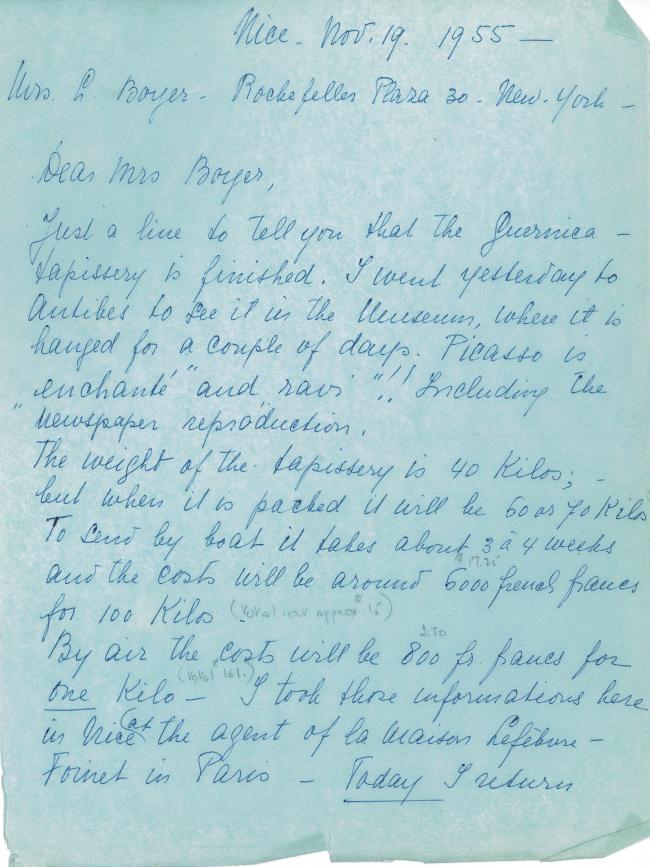 Nice. Nov. 19. 1955 —
Mrs. L. Boyer - Rockefeller Plaza 30 - New-York -
Dear Mrs Boyer,
Just a line to tell you that the Guernica -
tapissery is finished. I went yesterday to
Antibes to see it in the Museum, where it is
hanged for a couple of days. Picasso is
"enchanté" and "ravi"!! Including the
"newspaper" reproduction.
The weight of the tapissery is 40 Kilos; -
but when it is packed it will be 60 or 70 Kilos
To send by boat it takes about 3 à 4 weeks
$17.15
and the costs will be around 6000 french francs
for 100 Kilos. (total appro. $15)
2.30
By air the costs will be 800 fr. francs for
(total $161.)
one Kilo - I took those informations here
in Nice (at the agent of la Maison Lefèbvre -
Foinet in Paris - Today I return